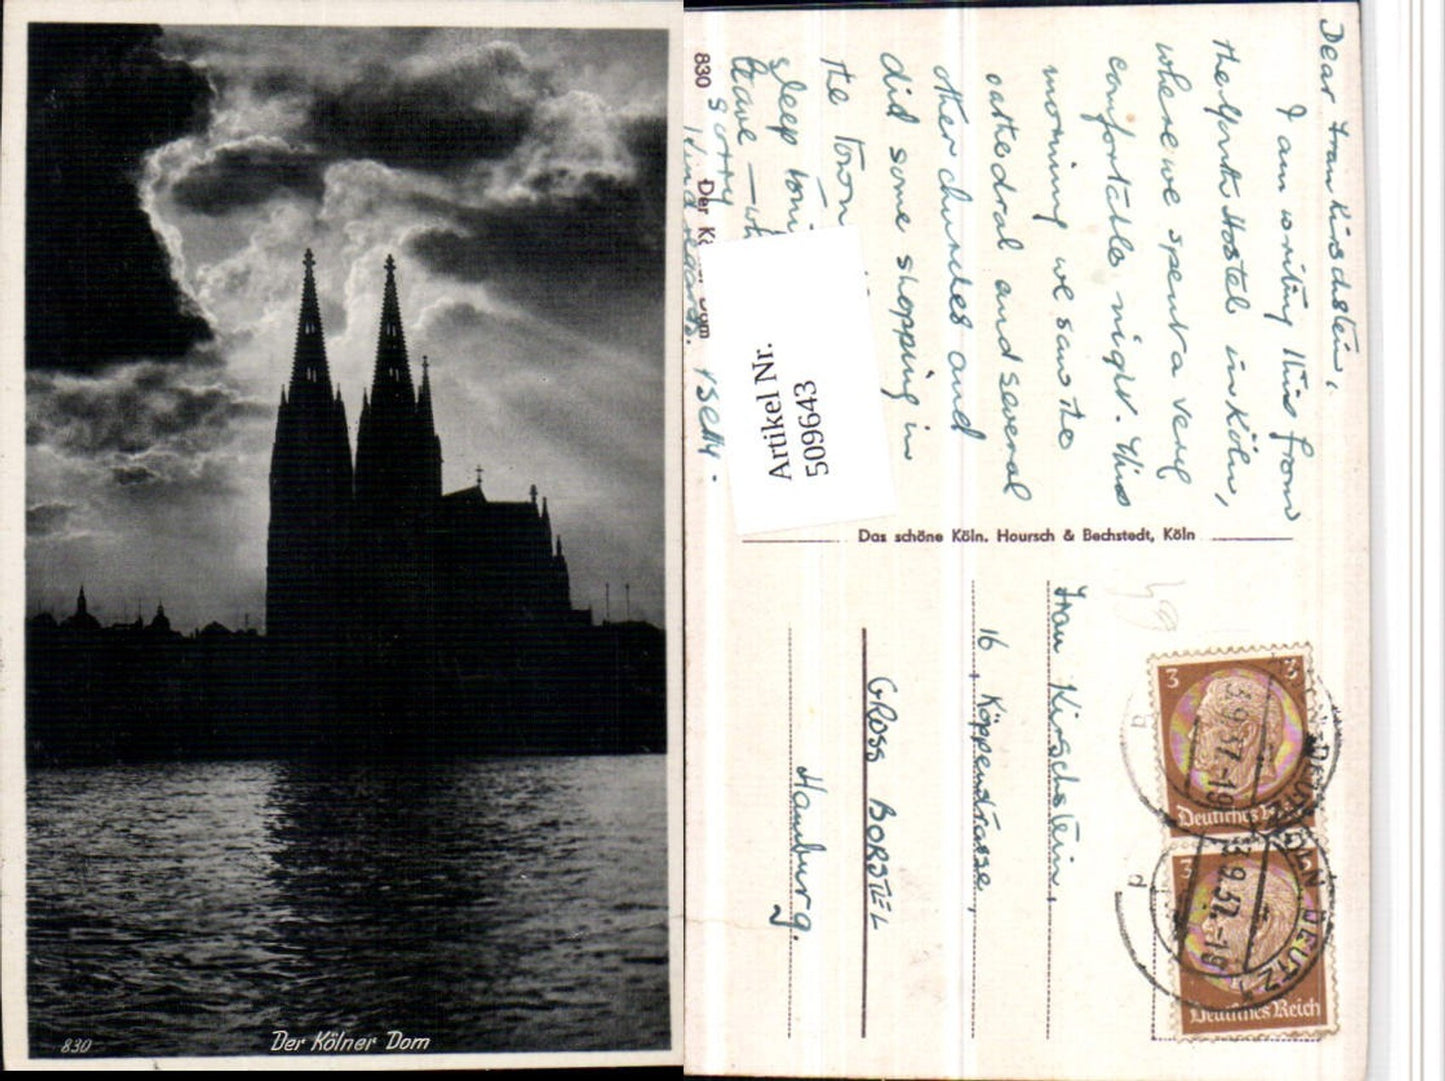 830
Der Kölner Dom
Dear Frau Kirschstein,
I am writing this from
the Youth Hostel in Köln,
where we spent a very
comfortable night. This
morning we saw the
cathedral and several
other churches and
did some shopping in
the town
sleep
leave —
Sorry
Kind regards. Betty.
830 Der Kö Dom
Artikel Nr.
509643
Das schöne Köln. Hoursch & Bechstedt, Köln
Frau Kirschstein,
16, Köppenstrasse,
GROSS BORSTEL
Hamburg.
3 3
Deutsches Reich
3
Deutsches Reich
KÖLN DEUTZ
3.9.37.-19
3.9.37.-19